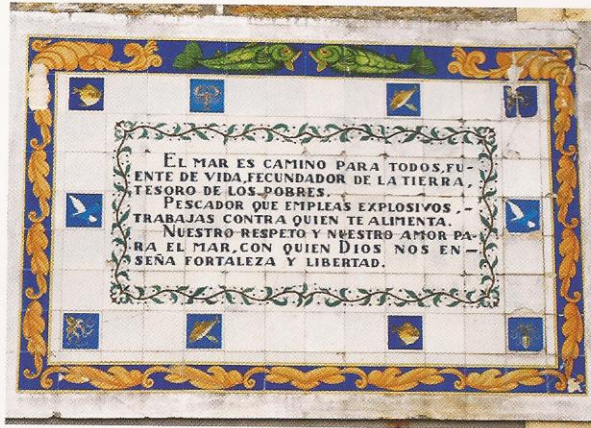 EL MAR ES CAMINO PARA TODOS, FU-
ENTE DE VIDA, FECUNDADOR DE LA TIERRA,
TESORO DE LOS POBRES.
PESCADOR QUE EMPLEAS EXPLOSIVOS,-
TRABAJAS CONTRA QUIEN TE ALIMENTA.
NUESTRO RESPETO Y NUESTRO AMOR PA-
RA EL MAR, CON QUIEN DIOS NOS EN-
SEÑA FORTALEZA Y LIBERTAD.